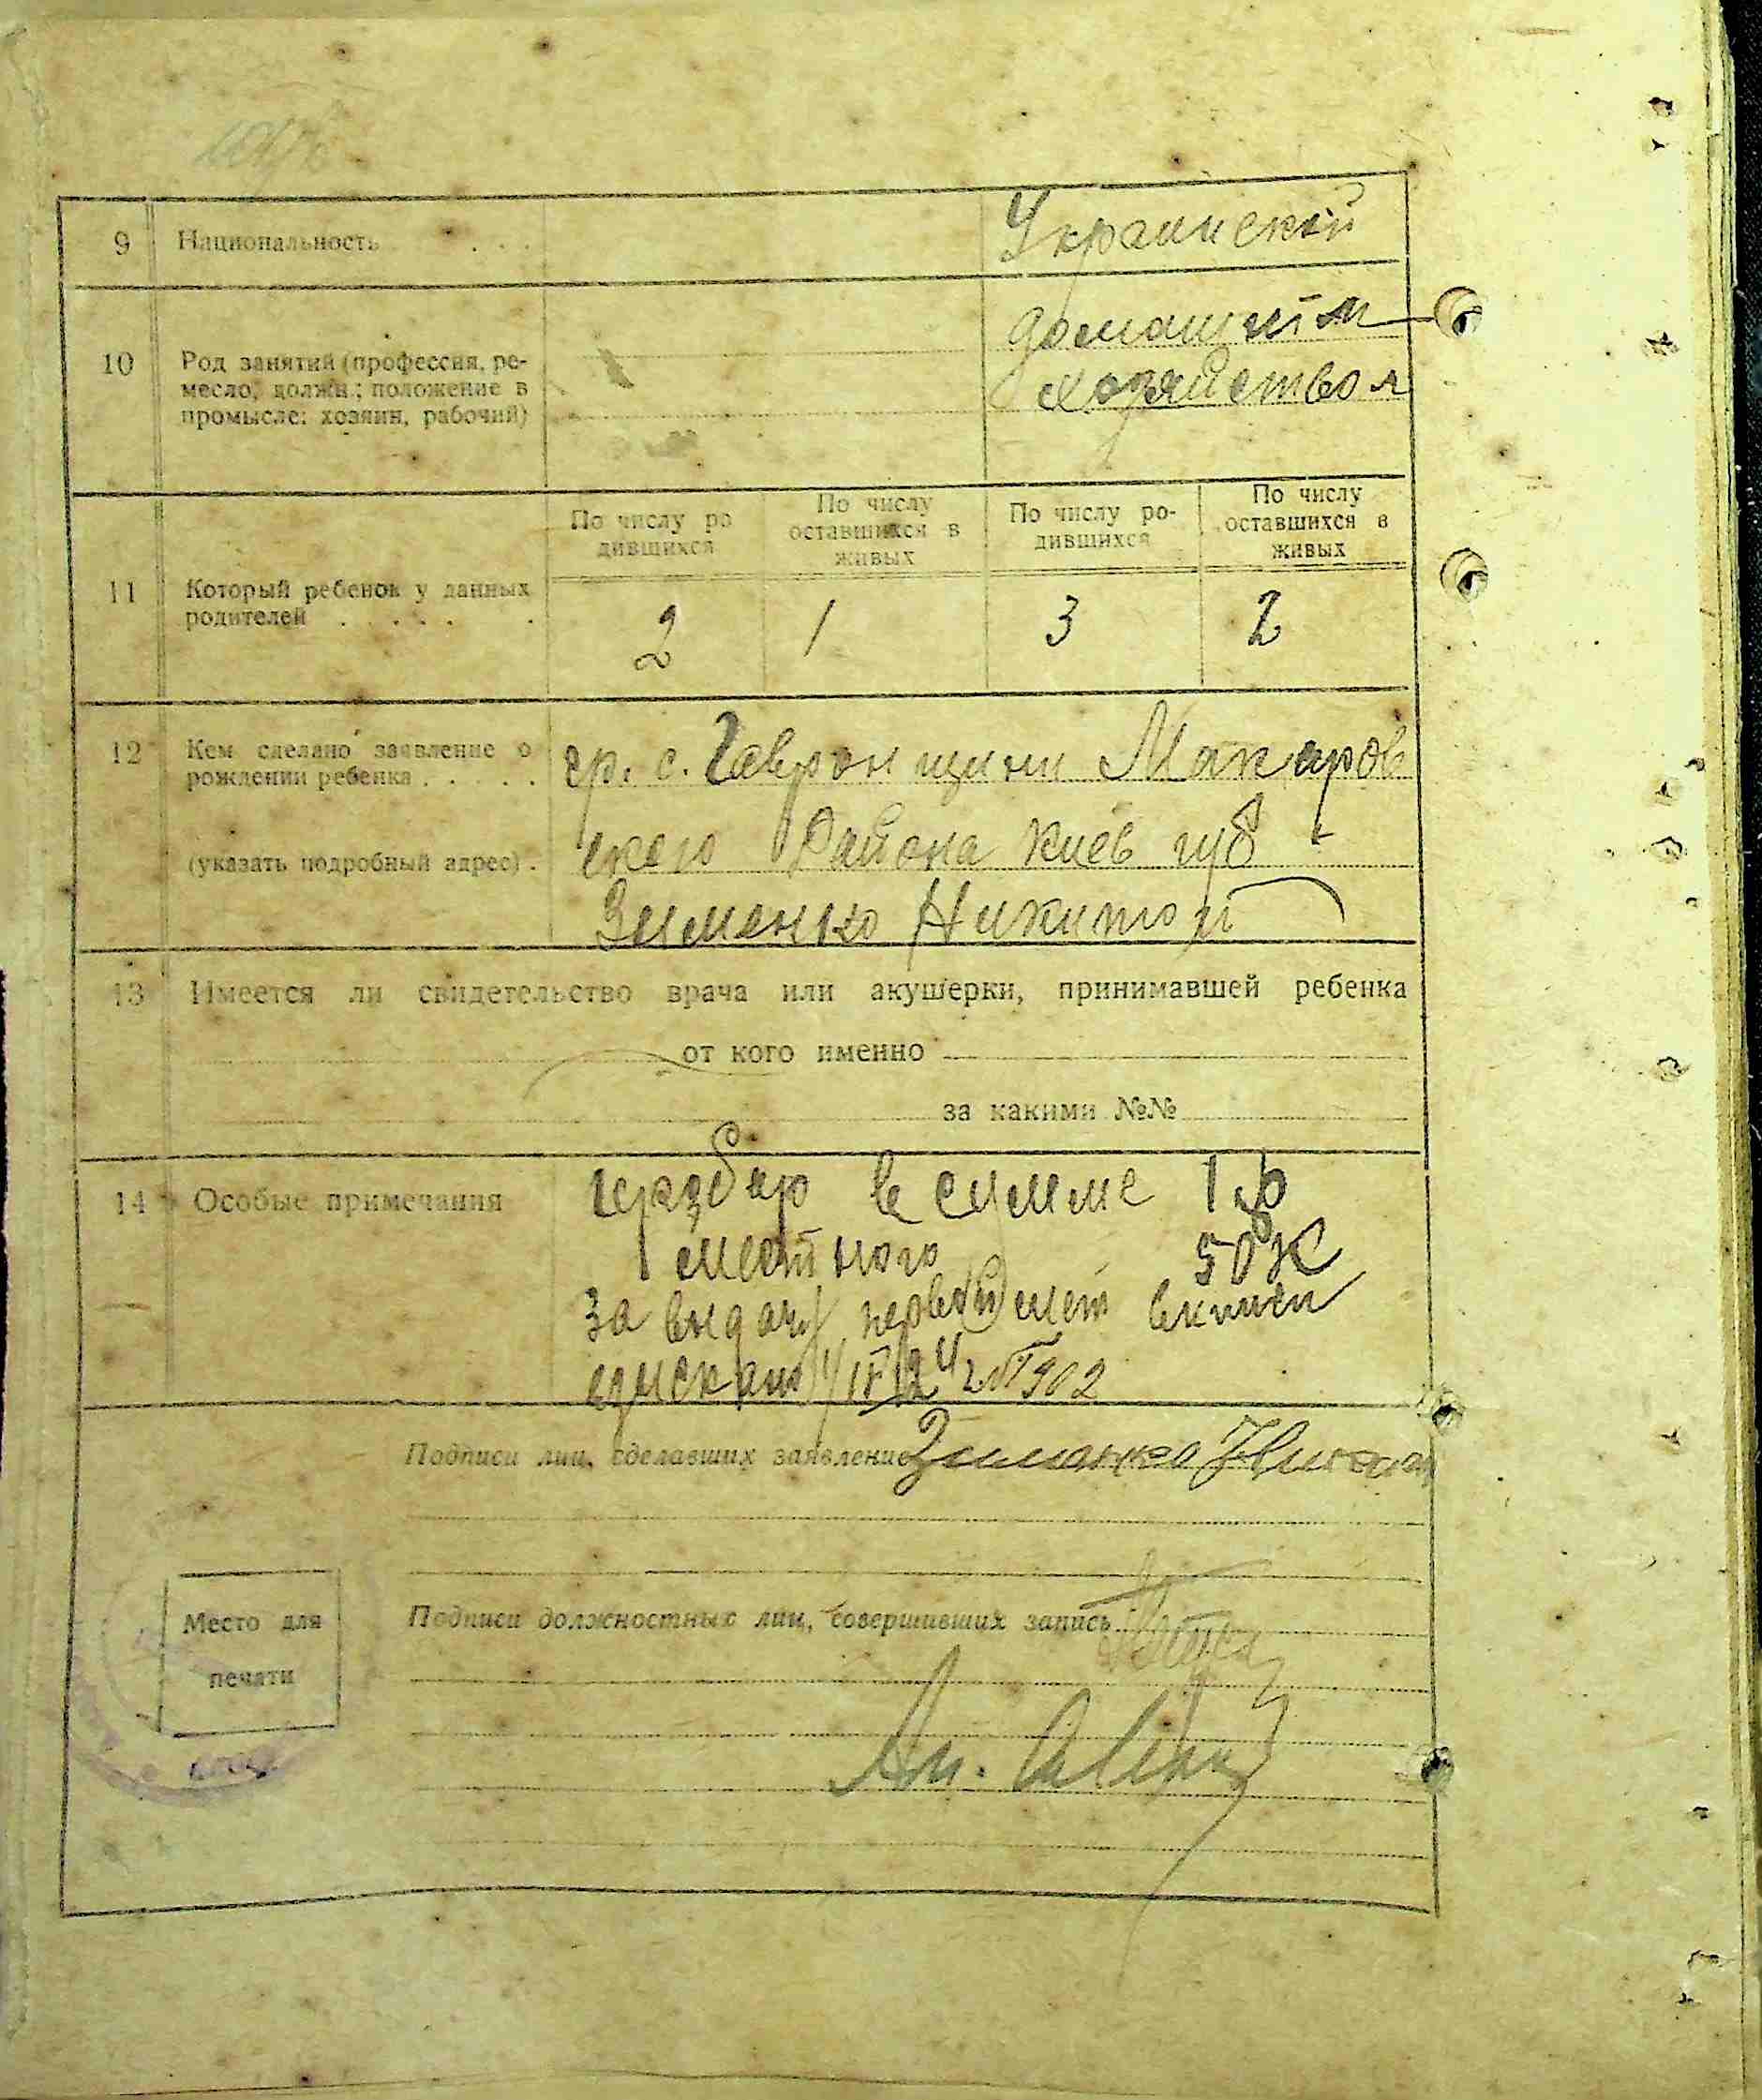 9 Национальность . . . Украинской
10 Род занятий (профессия, ре-
месло, должн.; положение в
промысле: хозяин, рабочий)
домашним
хозяйством
По числу ро
дившихся
По числу
оставшихся в
живых
По числу ро-
дившихся
По числу
оставшихся в
живых
11 Который ребенок у данных
родителей . . . . . .
2 1 3 2
12 Кем сделано заявление о
рождении ребенка . . . . .
(указать подробный адрес) .
гр. с. Гавронщини Макаров
ского Района Киев губ
Зименко Никитой
13 Имеется ли свидетельство врача или акушерки, принимавшей ребенка
от кого именно
за какими №№
14 Особые примечания
гербсбор в сумме 1 р
местного 50 К
за выдачу
Подписи лиц, сделавших заявление Зименко
Подписи должностных лиц, совершивших запись
Место для
печати